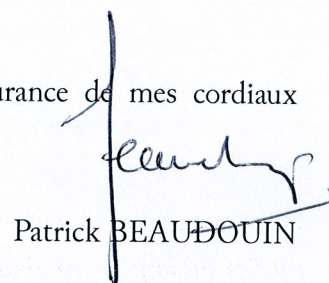 urance de mes cordiaux
Patrick BEAUDOUIN